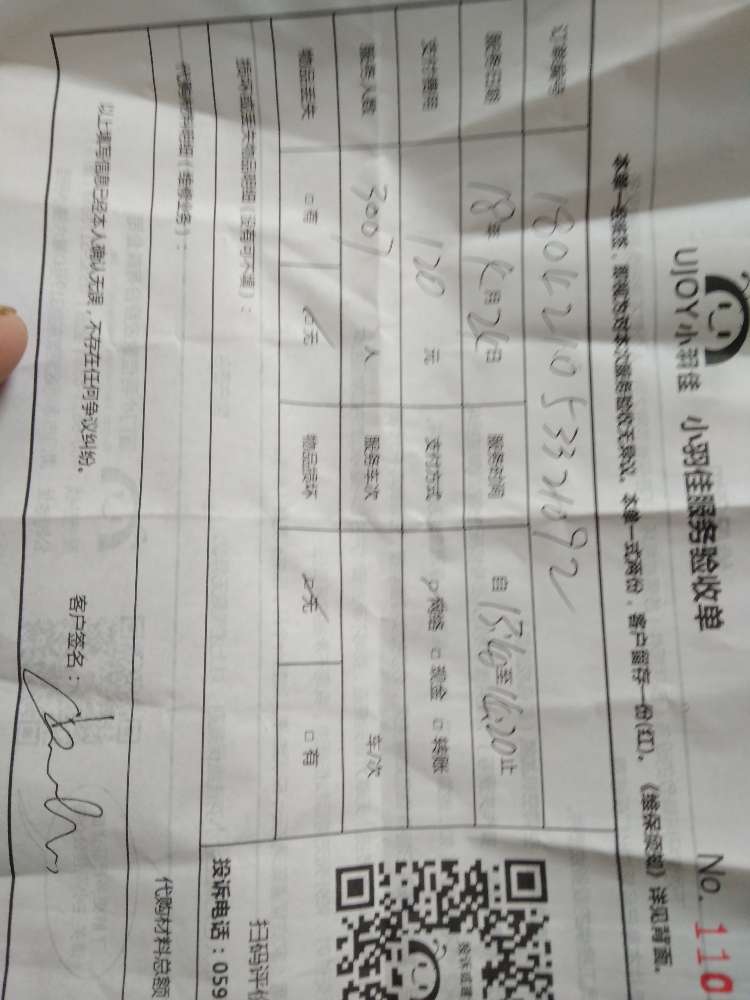 UJOY小羽佳 小羽佳服务验收单 No. 110
本单一经签签，即视为对本次服务验收无异议。本单一式两份，客户留存一份(红)。《维保须知》详见背面。
订单编号 180426105332092
服务日期 18年 4月26日 服务时间 自15:40至16:20止
支付费用 120 元 支付方式 网络 □现金 □转账
服务人数 人 服务车次 车/次
物品丢失 □有 无 物品损坏 无 □有
损坏或丢失物品明细（没有可不填）：
代购材料明细（维修业务）：
代购材料总额
以上填写信息已经本人确认无误，不存在任何争议纠纷。
客户签名：
投诉电话：059